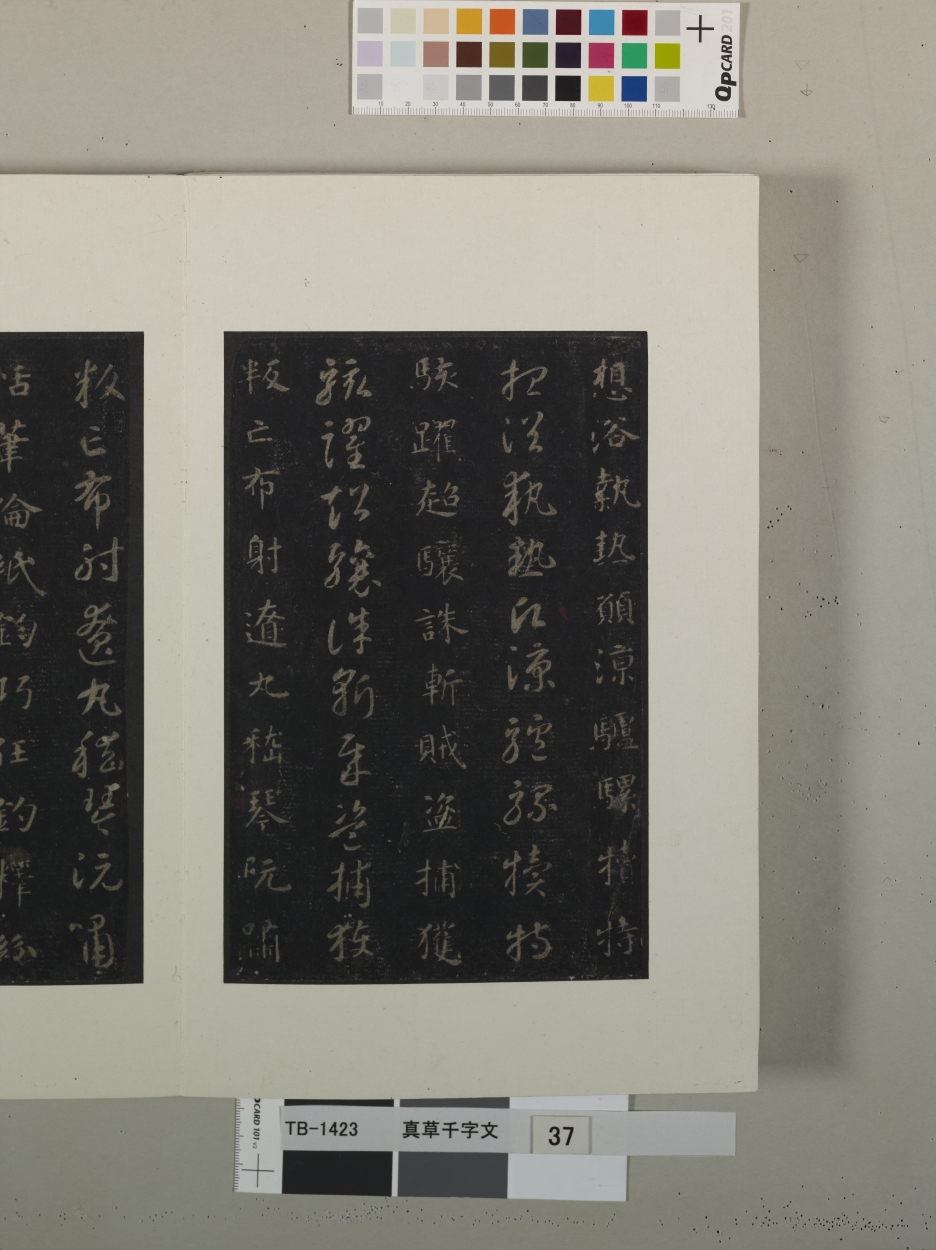 QPCARD 201
10 20 30 40 50 60 70 80 90 100 110 130
想浴執熱願涼驢騾犢特
想浴執熱願涼驢騾犢特
駭躍超驤誅斬賊盜捕獲
駭躍超驤誅斬賊盜捕獲
叛亡布射遼丸嵇琴阮嘯
叛亡布射遼丸嵇琴阮嘯
恬筆倫紙鈞巧任釣釋紛
CARD 101
TB-1423 真草千字文 37